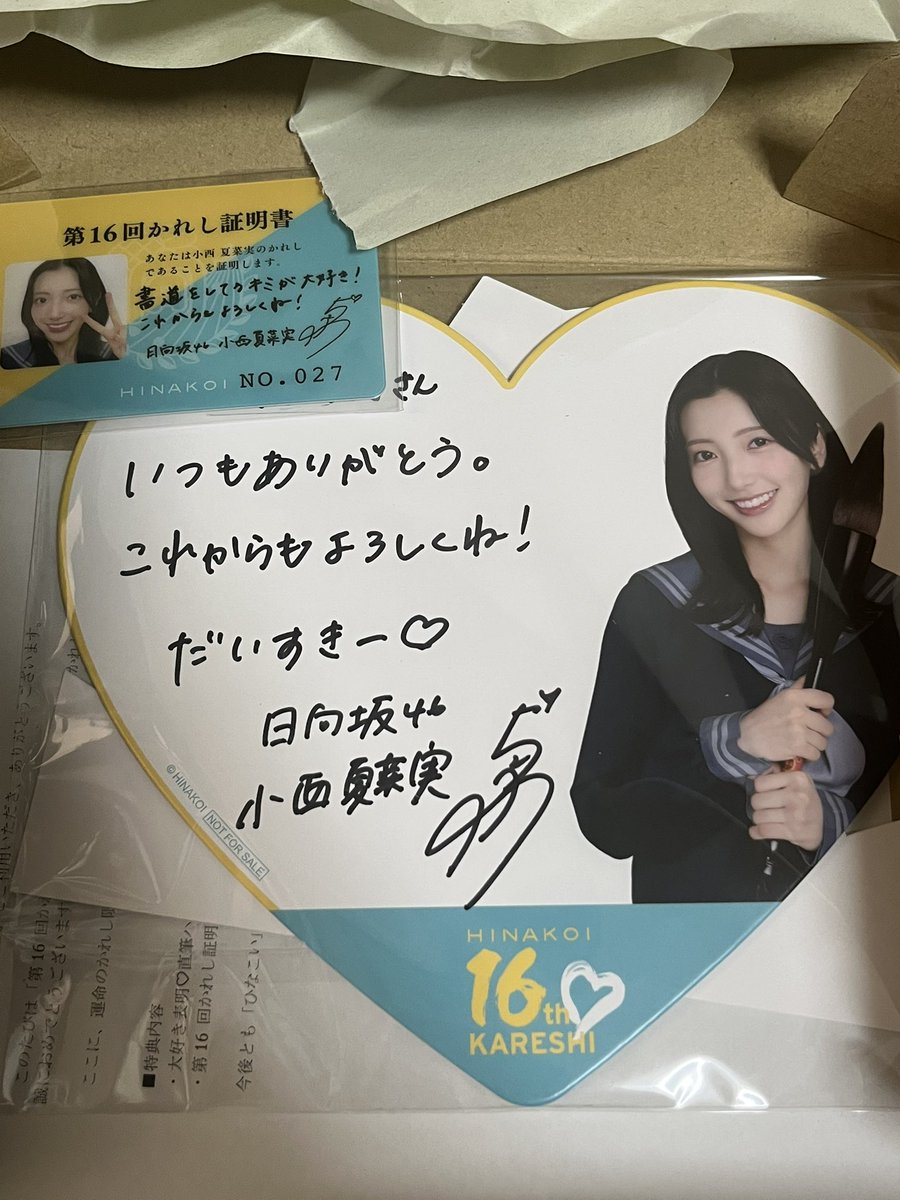 第16回かれし証明書
あなたは小西 夏菜実のかれし
であることを証明します。
書道をしてるキミが大好き!
これからもよろしくね!
日向坂46 小西夏菜実
HINAKOI NO.027
さん
いつもありがとう。
これからもよろしくね!
だいすきー♡
日向坂46
小西夏菜実
© HINAKOI NOT FOR SALE
HINAKOI
16th
KARESHI
このたびは「第16回か
誠におめでとうございます
ここに、運命のかれし限
■特典内容
・大好き表明♡直筆ハ
・第16回かれし証明
今後とも「ひなこい」
ご利用いただき、ありがとうございます。